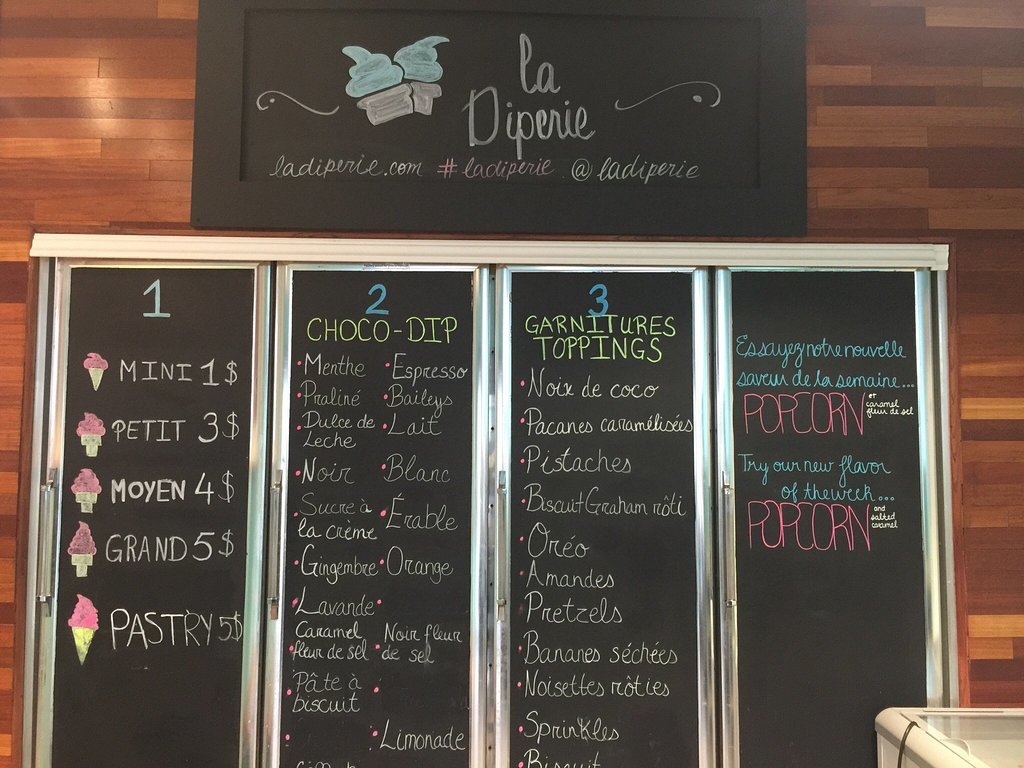 la
Diperie
ladiperie.com #ladiperie @ladiperie
1
MINI 1$
PETIT 3$
MOYEN 4$
GRAND 5$
PASTRY 5$
2
CHOCO-DIP
Menthe
Praliné
Dulce de
Leche
Noir
Sucre à
la crème
Gingembre
Lavande
Caramel
fleur de sel
Pâte à
biscuit
Espresso
Baileys
Lait
Blanc
Érable
Orange
Noir fleur
de sel
Limonade
3
GARNITURES
TOPPINGS
Noix de coco
Pacanes caramélisées
Pistaches
Biscuit Graham rôti
Oréo
Amandes
Pretzels
Bananes séchées
Noisettes rôties
Sprinkles
Biscuit
Essayez notre nouvelle
saveur de la semaine...
POPCORN et caramel fleur de sel
Try our new flavor
of the week...
POPCORN and salted caramel